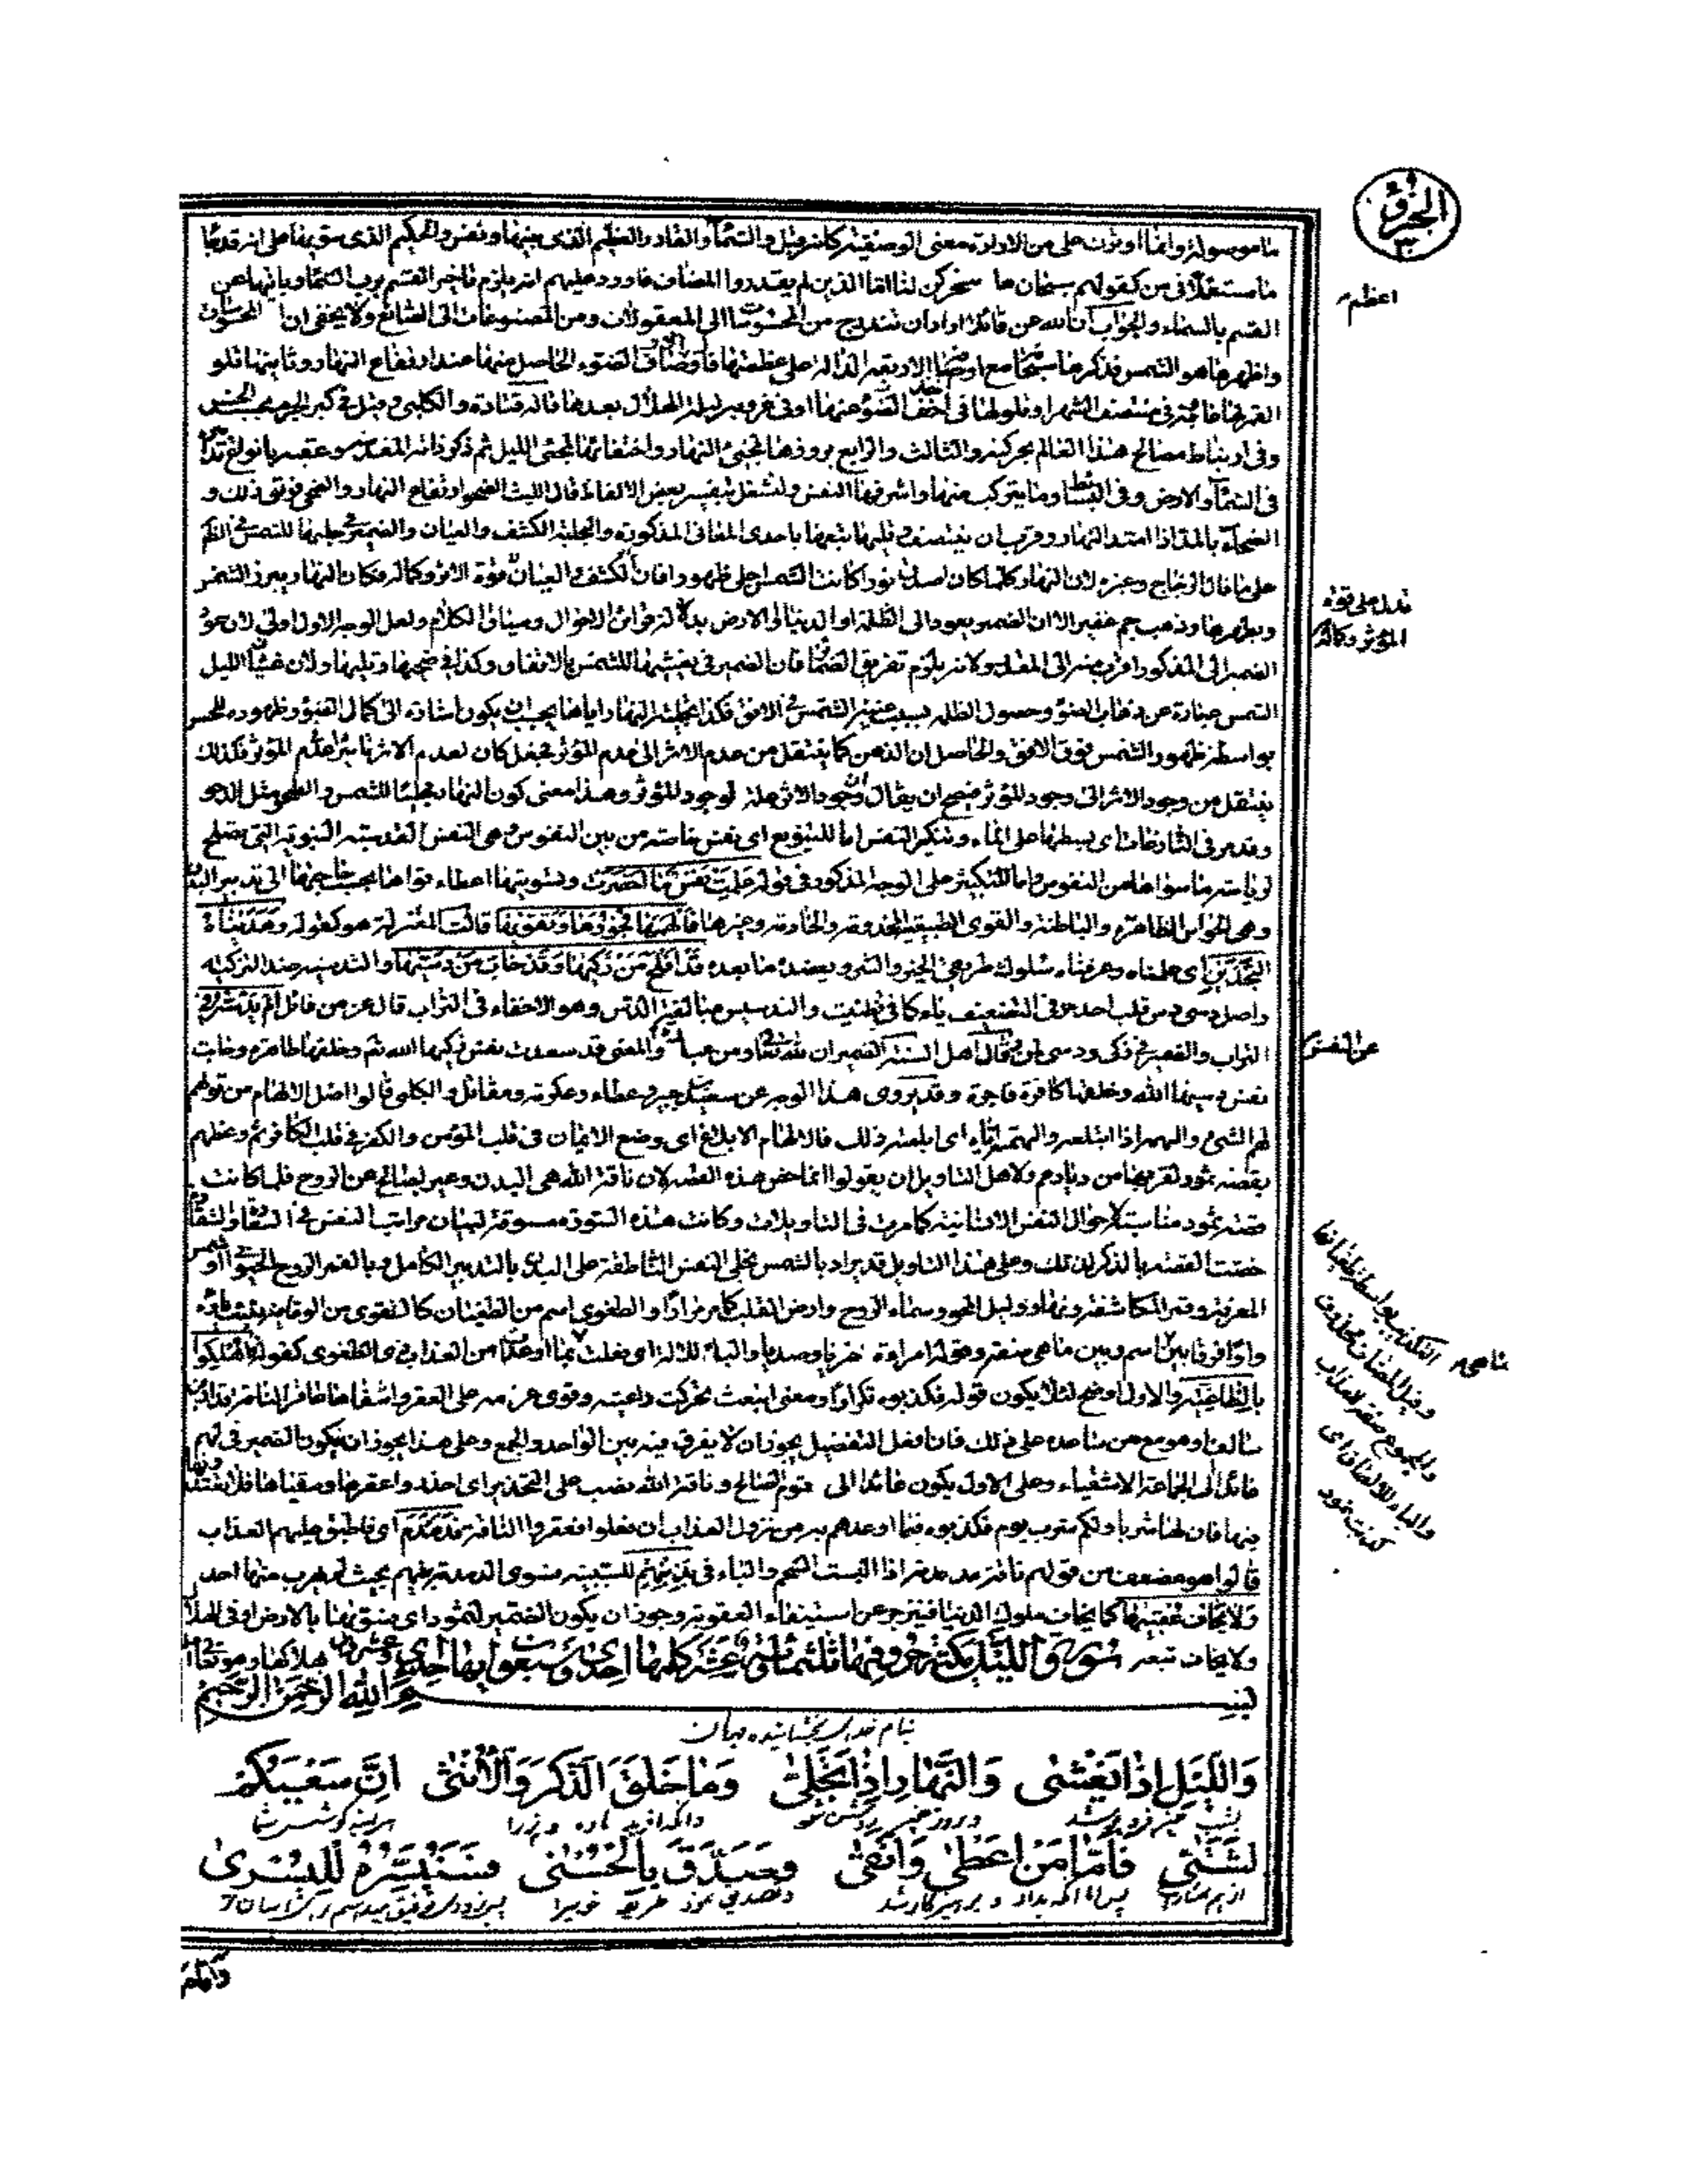 الجزؤ
٣٠
ما موصولة وانما اوثرت على من لارادة معنى الوصفية كانه قيل والسماء والقادر العظيم الذى بنيها ونفس والحكيم الذى سويها على انه قد جاء
ما مستعملا فى من كقولهم سبحان ما سخركن لنا اما الذين لم يقدروا المضاف فاورد عليهم انه يلزم تاخير القسم برب السماء وبانيها عن
اعظم
القسم بالسماء والجواب ان الله عز قائلا اراد ان يتدرج من المحسوسات الى المعقولات ومن المصنوعات الى الصانع ولا يخفى ان المحسوسات
واظهرها هو الشمس فذكرها سبحانه مع اوصافها الاربعة الدالة على عظمتها فاوصاف الضوء الحاصل منها عند ارتفاع النهار وثانيها تلو
القمر لها فانه فى منتصف الشهر او تلوها فى اخذ الضوء عنها او فى غروبه ليلة الهلال بعدها قاله قتادة والكلبى وقيل فى كبر الجرم بحسب الحس
وفى ارتباط مصالح هذا العالم بحركته والثالث والرابع بروزها بمجئ النهار واختفائها بمجئ الليل ثم ذكر ذاته المقدسة وعقبه بانواع تدابيره
فى السماء والارض وفى البسائط وما يتركب منها واشرفها النفس ولنشتغل بتفسير بعض الالفاظ قال الليث الضحو ارتفاع النهار والضحى فويق ذلك و
الضحاء بالمد اذا امتد النهار وقرب ان ينتصف تليها تبعها باحدى المعانى المذكورة والتجلية الكشف والعيان والضمير فى جليها للشمس فى الظاهر
على ما قال الزجاج وغيره لان النهار كلما كان اصدق نورا كانت الشمس اجلى ظهورا فان الكشف والعيان قوة الاثر وكماله فكان النهار يبرز الشمس
تدل على قوة المؤثر وكماله
ويظهرها وذهب جم غفير الا ان الضمير يعود الى الظلمة او الدنيا او الارض بدلالة قرائن الاحوال وسياق الكلام ولعل الوجه الاول اولى لان عود
الضمير الى المذكور اقرب منه الى المقدر ولانه يلزم تفريق الضمائر فان الضمير فى يغشيها للشمس بالاتفاق وكذا فى ضحيها وتليها ولان غشيان الليل
الشمس عبارة عن ذهاب الضوء وحصول الظلمة بسبب غيبة الشمس فى الافق فكذا تجلية النهار اياها يجب ان يكون اشارة الى كمال الضوء وظهوره للحس
بواسطة ظهور الشمس فوق الافق والحاصل ان الذهن كما ينتقل من عدم الاثر الى عدم المؤثر فجعل كان لعدم الاثر تاثيرا فى عدم المؤثر فكذلك
ينتقل من وجود الاثر الى وجود المؤثر فيصح ان يقال وجود الاثر علة لوجود المؤثر وهذا معنى كون النهار مجليا للشمس والطحو مثل الدحو
وقد مر فى النازعات اى بسطها على الماء وتنكير النفس اما للتنويع اى نفس خاصة من بين النفوس وهى النفس القدسية النبوية التى تصلح
لرياسة ما سواها من النفوس واما للتكثير على الوجه المذكور فى قوله علمت نفس ما احضرت وتسويتها اعطاء قواها بحسب حاجتها الى تدبير البدن
وهى الحواس الظاهرة والباطنة والقوى الطبيعية المخدومة والخادمة وغيرها فالهمها فجورها وتقويها قالت المعتزلة هو كقوله وهديناه
النجدين اى علمناه وعرفناه سلوك طريقى الخير والشر ويعضده ما بعده قد افلح من زكيها وقد خاب من دسيها والتدسية ضد التزكية
واصل دسى دسس قلب احد حرفى التضعيف ياء كما فى تظنيت والتدسيس مبالغة الدس وهو الاخفاء فى التراب قال عز من قائل ام يدسه فى
عن النفس
التراب والضمير فى زكى ودسى لمن وقال اهل السنة الضميران لله تعالى ومن عبارة والمعنى قد سعدت نفس زكيها الله تعم وخلقها طاهرة وخابت
نفس دسيها الله وخلقها كافرة فاجرة وقد يروى هذا الوجه عن سعيد بن جبير وعطاء وعكرمة ومقاتل والكلبى قالوا اصل الالهام من قولهم
لهم الشئ والتهمه اذا ابتلعه والهمته اياه اى ابلعته ذلك فالالهام الابلاغ اى وضع الايمان فى قلب المؤمن والكفر فى قلب الكافر ثم وعظهم
بقصة ثمود لقربها من ديارهم ولاهل التاويل ان يقولوا انما خص هذه القصة لان ناقة الله هى البدن وعبر بصالح عن الروح فلما كانت
قصة ثمود مناسبة لاحوال النفس الانسانية كما مرت فى التاويلات وكانت هذه السورة مسوقة لبيان مراتب النفس فى السعادة والشقاء
خصت القصة بالذكر لذلك وعلى هذا التاويل قد يراد بالشمس تجلى النفس الناطقة على البدن بالتدبير الكامل وبالقمر الروح الحيوانى او شمس
المعرفة وقمر المكاشفة ونهار وليل المحو وسماء الروح وارض القلب كما مر مرارا والطغوى اسم من الطغيان كالتقوى من الوقاية يقلبون يائه
واوا فرقا بين اسم وبين ما هى صفة وقوله امراة خزيا وصديا والباء للالة اى فعلت بما اوعدت من العذاب ذى الطغوى كقوله فاهلكوا
ما هى الة التكذيب بواسطة طغيانها
وقيل المضاف محذوف
والمجموع صفة العذاب
والباء للالصاق اى
كذبت ثمود
بالطاغية والاول اوضح لئلا يكون قوله فكذبوه تكرارا ومعنى انبعث تحركت داعيته وقوى عزمه على العقر واشقاها عاقر الناقة قدار بن
سالف او هو مع من ساعده على ذلك فان افعل التفضيل يجوز ان لا يفرق فيه بين الواحد والجمع وعلى هذا يجوز ان يكون الضمير فى لهم
عائدا الى الجماعة الاشقياء وعلى الاول يكون عائدا الى قوم صالح وناقة الله نصب على التحذير اى احذروا عقرها وسقياها فلا تعتدوا
فيها فان لها شربا ولكم شرب يوم فكذبوه فيما اوعدهم به من نزول العذاب ان فعلوا فعقروا الناقة فدمدم اى فاطبق عليهم العذاب
قالوا هو مضعف من قولهم ناقة مدمدمة اذا البست الشحم والباء فى بذنبهم للسببية فسوى الدمدمة عليهم بحيث لم يهرب منها احد
ولا يخاف عقبيها كما يخاف ملوك الدنيا فيزجر عن استيفاء العقوبة وجوز ان يكون الضمير لثمود اى فسويها بالارض او فى الهلاك
ولا يخاف تبعة هلاكها وهو تعالى اعلم سورة والليل مكية حروفها ثلثمائة وعشر كلمها احدى وسبعون ايها احدى وعشرون
بسم الله الرحمن الرحيم
بنام خداى بخشاينده مهربان
وَاللَّيْلِ اِذَا يَغْشٰى وَالنَّهَارِ اِذَا تَجَلّٰى وَمَا خَلَقَ الذَّكَرَ وَالْاُنْثٰى اِنَّ سَعْيَكُمْ
بشب چون فرو پوشد وبروز چون روشن شود وانكه افريد نر وماده را بدرستيكه كوشش شما
لَشَتّٰى فَاَمَّا مَنْ اَعْطٰى وَاتَّقٰى وَصَدَّقَ بِالْحُسْنٰى فَسَنُيَسِّرُهُ لِلْيُسْرٰى
پس اما انكه بداد و پرهيزكار شد وتصديق نمود
واما من